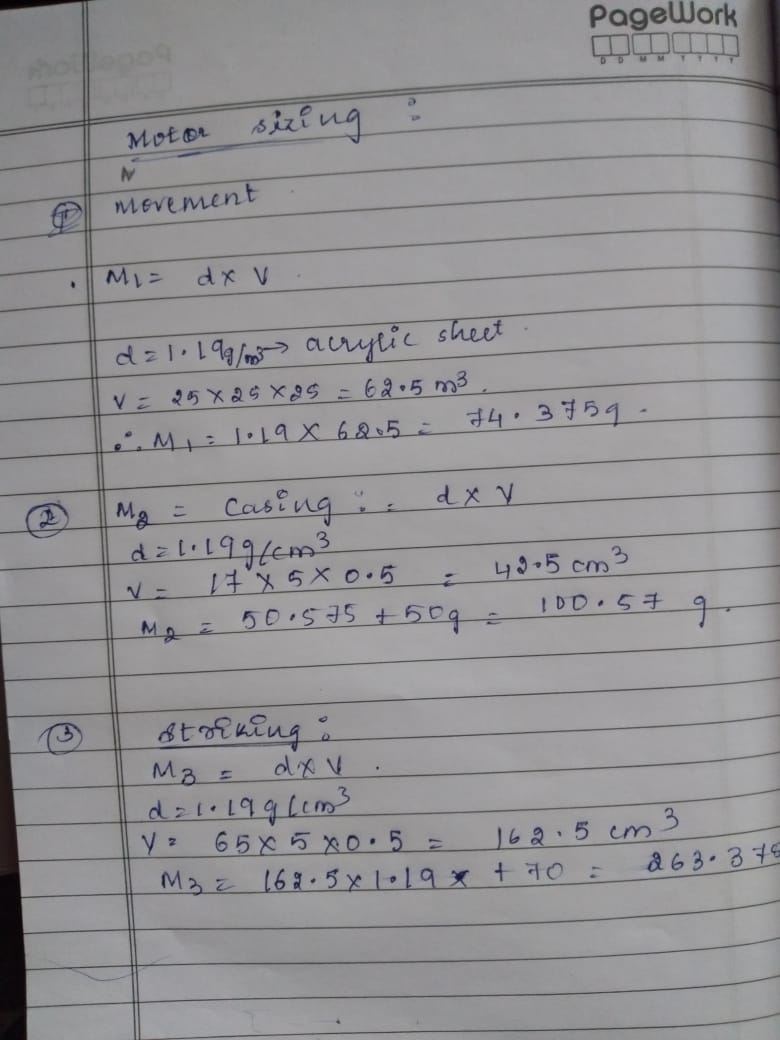 PageWork
D D M M Y Y Y Y
Motor sizing :
N
① Movement
. M1 = d x V
d = 1.19g/m3 → acrylic sheet.
V = 25 x 25 x 25 = 62.5 m3.
∴ M1 = 1.19 x 62.5 = 74.375g.
② M2 = Casing : = d x V
d = 1.19 g/cm3
V = 17 x 5 x 0.5 = 42.5 cm3
M2 = 50.575 + 50g = 100.57 g.
③ Striking :
M3 = d x V.
d = 1.19 g/cm3
V = 65 x 5 x 0.5 = 162.5 cm3
M3 = 162.5 x 1.19 + 70 = 263.375